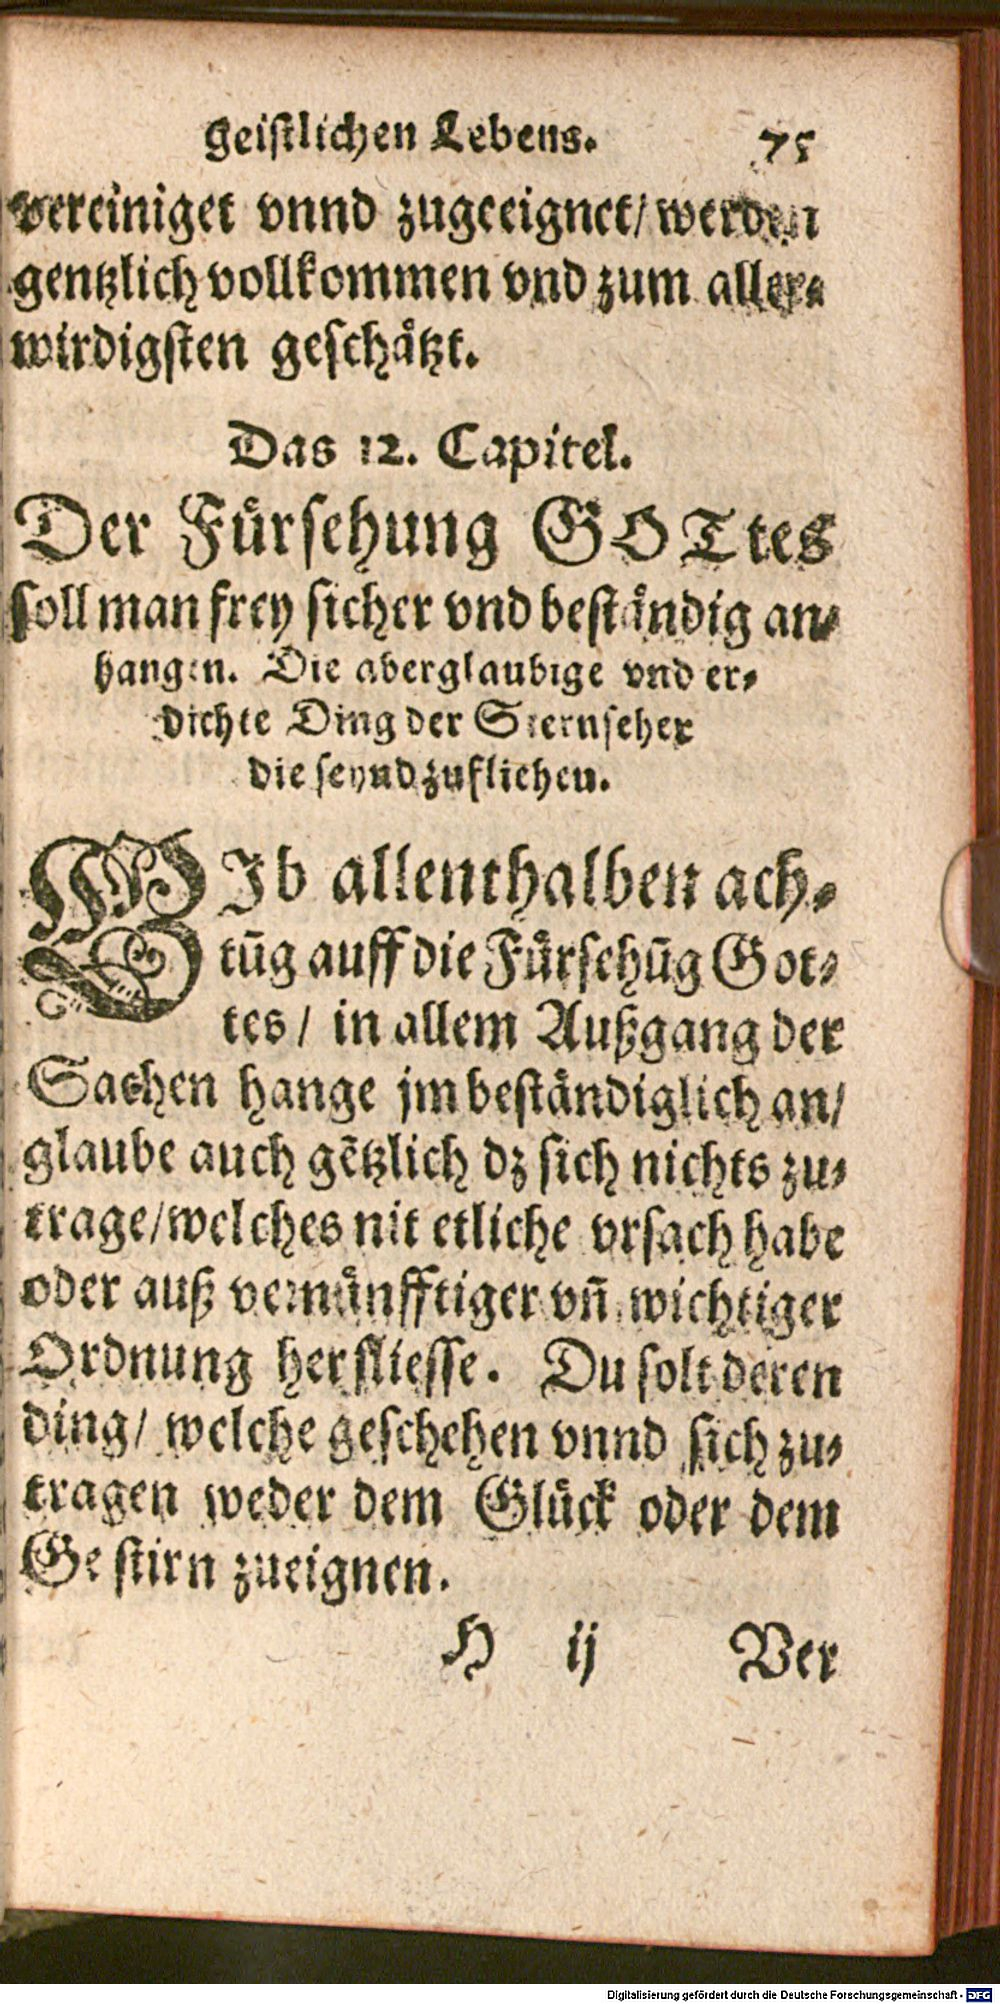 geistlichen Lebens. 75
vereiniget vnnd zugeeignet/ werden
gentzlich vollkommen vnd zum aller-
wirdigsten geschätzt.
Das 12. Capitel.
Der Fürsehung GOTtes
soll man frey sicher vnd beständig an-
hangen. Die aberglaubige vnd er-
dichte Ding der Sternseher
die seynd zufliehen.
GIb allenthalben ach-
tũg auff die Fürsehũg Got-
tes/ in allem Außgang der
Sachen hange jm beständiglich an/
glaube auch gẽtzlich dz sich nichts zu-
trage/welches nit etliche vrsach habe
oder auß vernünfftiger vñ wichtiger
Ordnung herfliesse. Du solt deren
ding/ welche geschehen vnnd sich zu-
tragen weder dem Glück oder dem
Gestirn zueignen.
H ij Ver
Digitalisierung gefördert durch die Deutsche Forschungsgemeinschaft - DFG